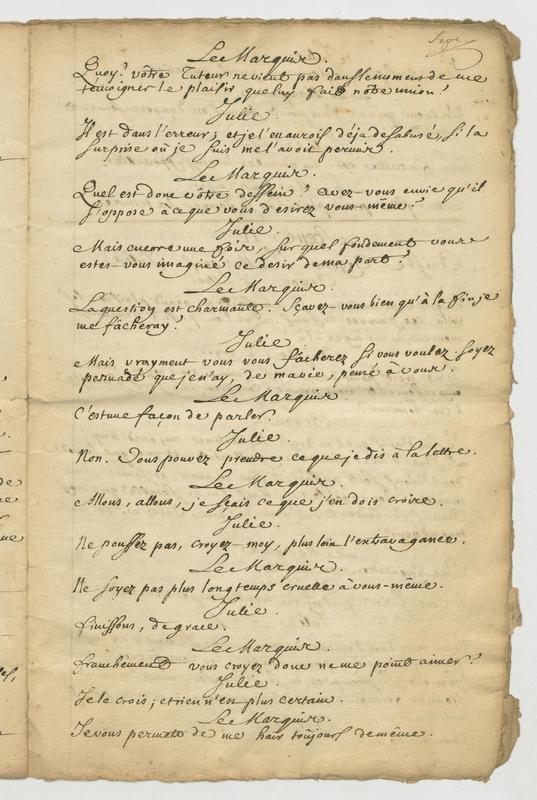 Sept
Le Marquis.
Quoy? vôtre Tuteur ne vient pas dans le moment de me
temoigner le plaisir que luy fait nôtre union?
Julie.
Il est dans l'erreur; et je l'en aurois déja desabusé, si la
surprise où je suis me l'avoit permis.
Le Marquis.
Quel est donc vôtre dessein? avez-vous envie qu'il
s'oppose à ce que vous desirez vous-même?
Julie.
Mais encore une fois, sur quel fondement vous
estes-vous imaginé ce desir de ma part?
Le Marquis.
La question est charmante. Sçavez-vous bien qu'à la fin je
me fâcheray?
Julie
Mais vrayment vous vous fâcherez si vous voulez. soyez
persuadé que je n'ay, de ma vie, pensé à vous.
Le Marquis
C'est une façon de parler.
Julie.
Non. Vous pouvez prendre ce que je dis à la lettre.
Le Marquis.
Allons, allons, je sçais ce que j'en dois croire.
Julie.
Ne poussez pas, croyez-moy, plus loin l'extravagance.
Le Marquis.
Ne soyez pas plus longtemps cruelle à vous-même.
Julie.
finissons, de grace.
Le Marquis.
franchement vous croyez donc ne me point aimer?
Julie.
Je le crois; et rien n'est plus certain.
Le Marquis.
Je vous permets de me haïr toûjours de même.